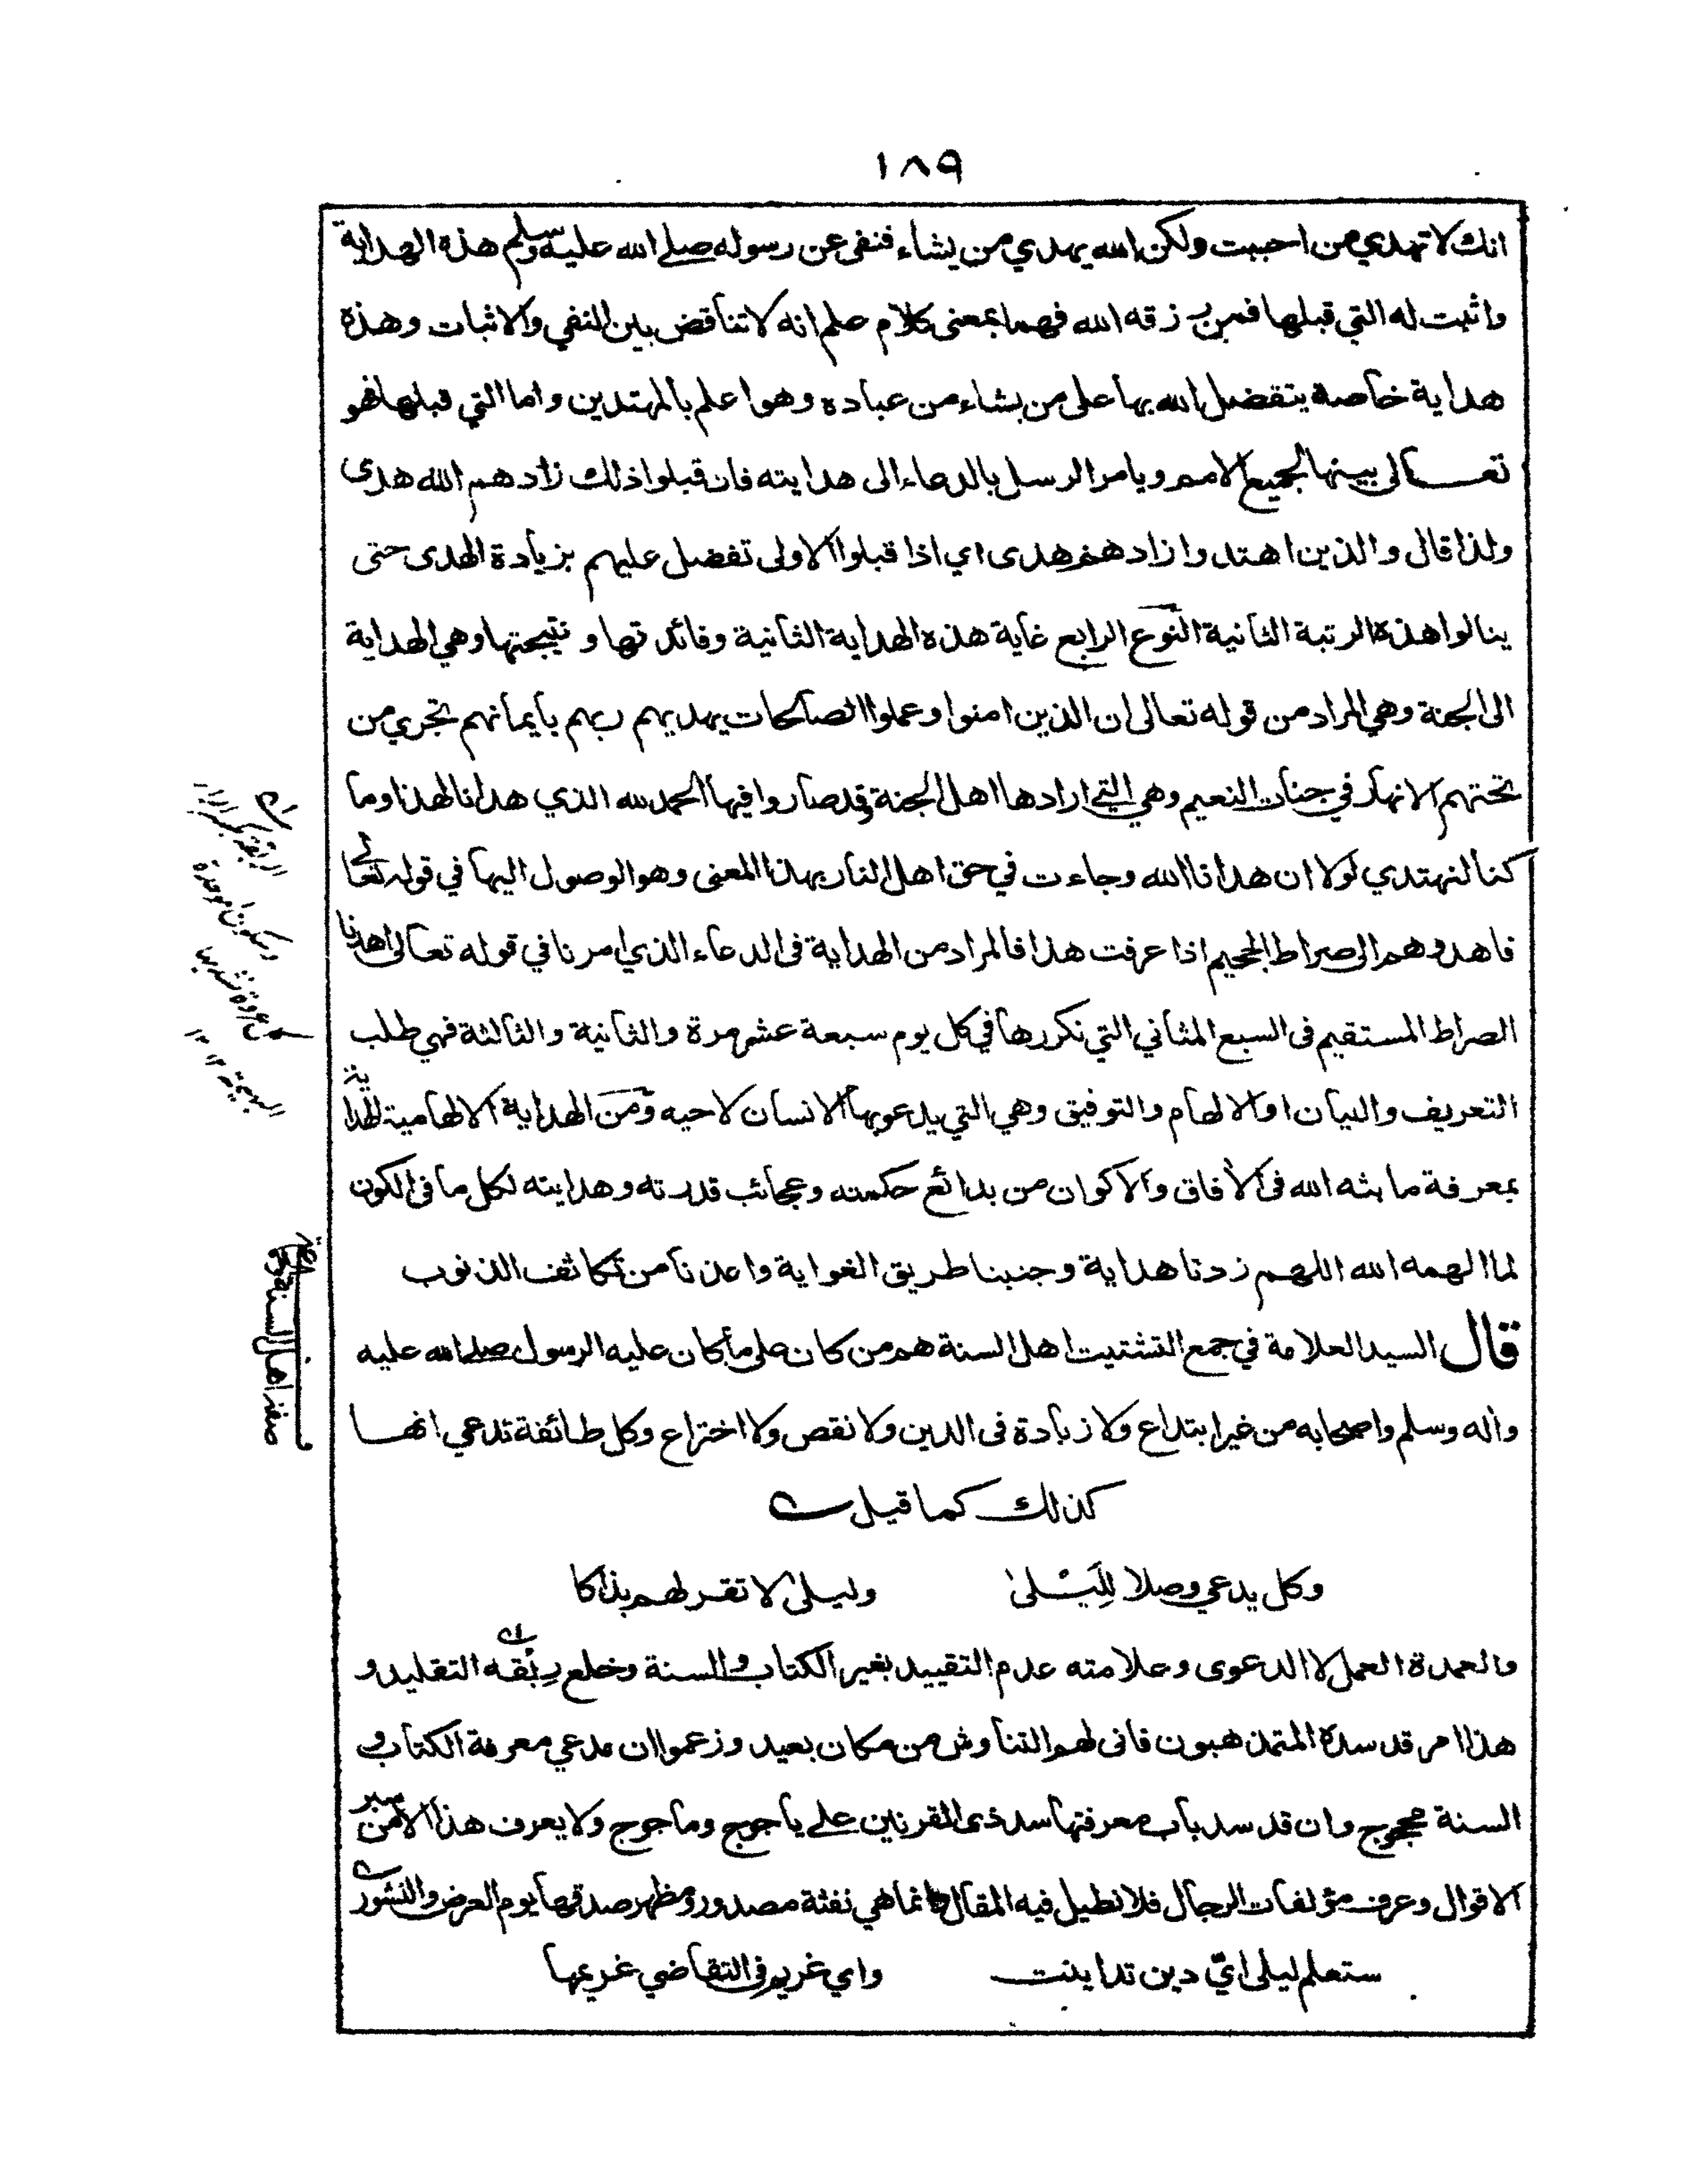 ١٨٩
انك لا تهدي من احببت ولكن الله يهدي من يشاء فنفى عن رسوله صلے الله عليه وسلم هذه الهداية
واثبت له التي قبلها فمن رزقه الله فهما بمعنى كلام علم انه لا تناقض بين النفي والاثبات وهذة
هداية خاصة يتفضل الله بها على من يشاء من عباده وهو اعلم بالمهتدين واما التي قبلها فهو
تعالى يبينها لجميع الامم ويامر الرسل بالدعاء الى هدايته فان قبلوا ذلك زادهم الله هدى
ولذا قال والذين اهتدوا زادهم هدى اي اذا قبلوا الاولى تفضل عليهم بزيادة الهدى حتى
ينالوا هذة الرتبة الثانية النوع الرابع غاية هذه الهداية الثانية وفائدتها ونتيجتها وهي الهداية
الى الجنة وهي المراد من قوله تعالى ان الذين امنوا وعملوا الصالحات يهديهم ربهم بايمانهم تجري من
تحتهم الانهار في جنات النعيم وهي التي ارادها اهل الجنة وقد صاروا فيها الحمد لله الذي هدانا لهذا وما
كنا لنهتدي لولا ان هدانا الله وجاءت في حق اهل النار بهذا المعنى وهو الوصول اليها في قوله تعالى
فاهدوهم الى صراط الجحيم اذا عرفت هذا فالمراد من الهداية في الدعاء الذي امرنا في قوله تعالى اهدنا
الصراط المستقيم في السبع المثاني التي نكررها في كل يوم سبعة عشر مرة والثانية والثالثة فهي طلب
التعريف والبيان او الالهام والتوفيق وهي التي يدعو بها الانسان لاخيه ومن الهداية الالهامية الهداية
بمعرفة ما بثه الله في الأفاق والاكوان من بدائع حكمته وعجائب قدرته وهدايته لكل ما في الكون
لما الهمه الله اللهم زدنا هداية وجنبنا طريق الغواية واعذنا من تكاثف الذنوب
قال السيد العلامة في جمع التشتيت اهل السنة هم من كان على ما كان عليه الرسول صلے الله عليه
وأله وسلم واصحابه من غير ابتداع ولا زيادة في الدين ولا نقص ولا اختراع وكل طائفة تدعي انها
كذلك كما قيل
وكل يدعي وصلا لِلَيْلىٰ وليلىٰ لا تقر لهم بذاكا
والعمدة العمل لا الدعوى وعلامته عدم التقييد بغير الكتاب والسنة وخلع رِبْقه التقليد و
هذا امر قد سدة المتمذهبون فانى لهم التناوش من مكان بعيد وزعموا ان مدعي معرفة الكتاب و
السنة محجوج وان قد سد باب معرفتها سد ذى القرنين علے ياجوج وماجوج ولا يعرف هذا الا من سبر
الاقوال وعرف مؤلفات الرجال فلا نطيل فيه المقال فانما هي نفثة مصدور ومظهر صدقها يوم العرض والنشور
ستعلم ليلى ايّ دين تداينت واي غريم في التقاضي غريمها